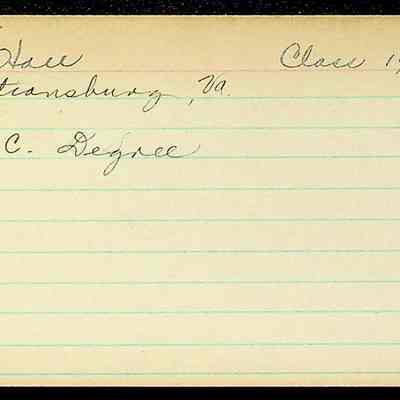 Hall Class 19
tiansburg, Va.
C. Degree